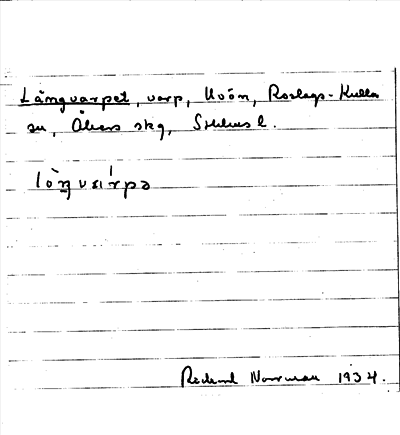 Långvarpet, varp, Uvön, Roslags-Kulla
sn, Åkers skg, Sthlms l.
lò̀ŋvárpə
Rickard Norrman 1934.